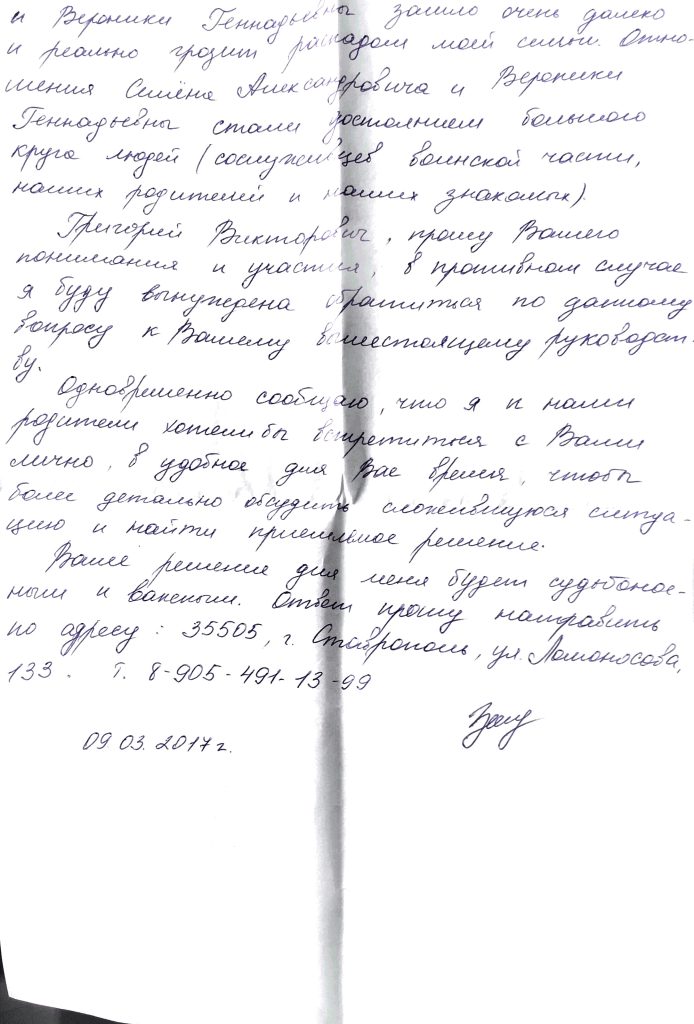 и Вероники Геннадьевны зашло очень далеко
и реально грозит распадом моей семьи. Отно-
шения Семёна Александровича и Вероники
Геннадьевны стали достоянием большого
круга людей (сослуживцев воинской части,
наших родителей и наших знакомых).
Григорий Викторович, прошу Вашего
понимания и участия, в противном случае
я буду вынуждена обратиться по данному
вопросу к Вашему вышестоящему руководст-
ву.
Одновременно сообщаю, что я и наши
родители хотели бы встретиться с Вами
лично, в удобное для Вас время, чтобы
более детально обсудить сложившуюся ситуа-
цию и найти приемлемое решение.
Ваше решение для меня будет судьбонос-
ным и важным. Ответ прошу направить
по адресу: 35505, г. Ставрополь, ул. Ломоносова,
133. Т. 8-905-491-13-99
09.03.2017 г.